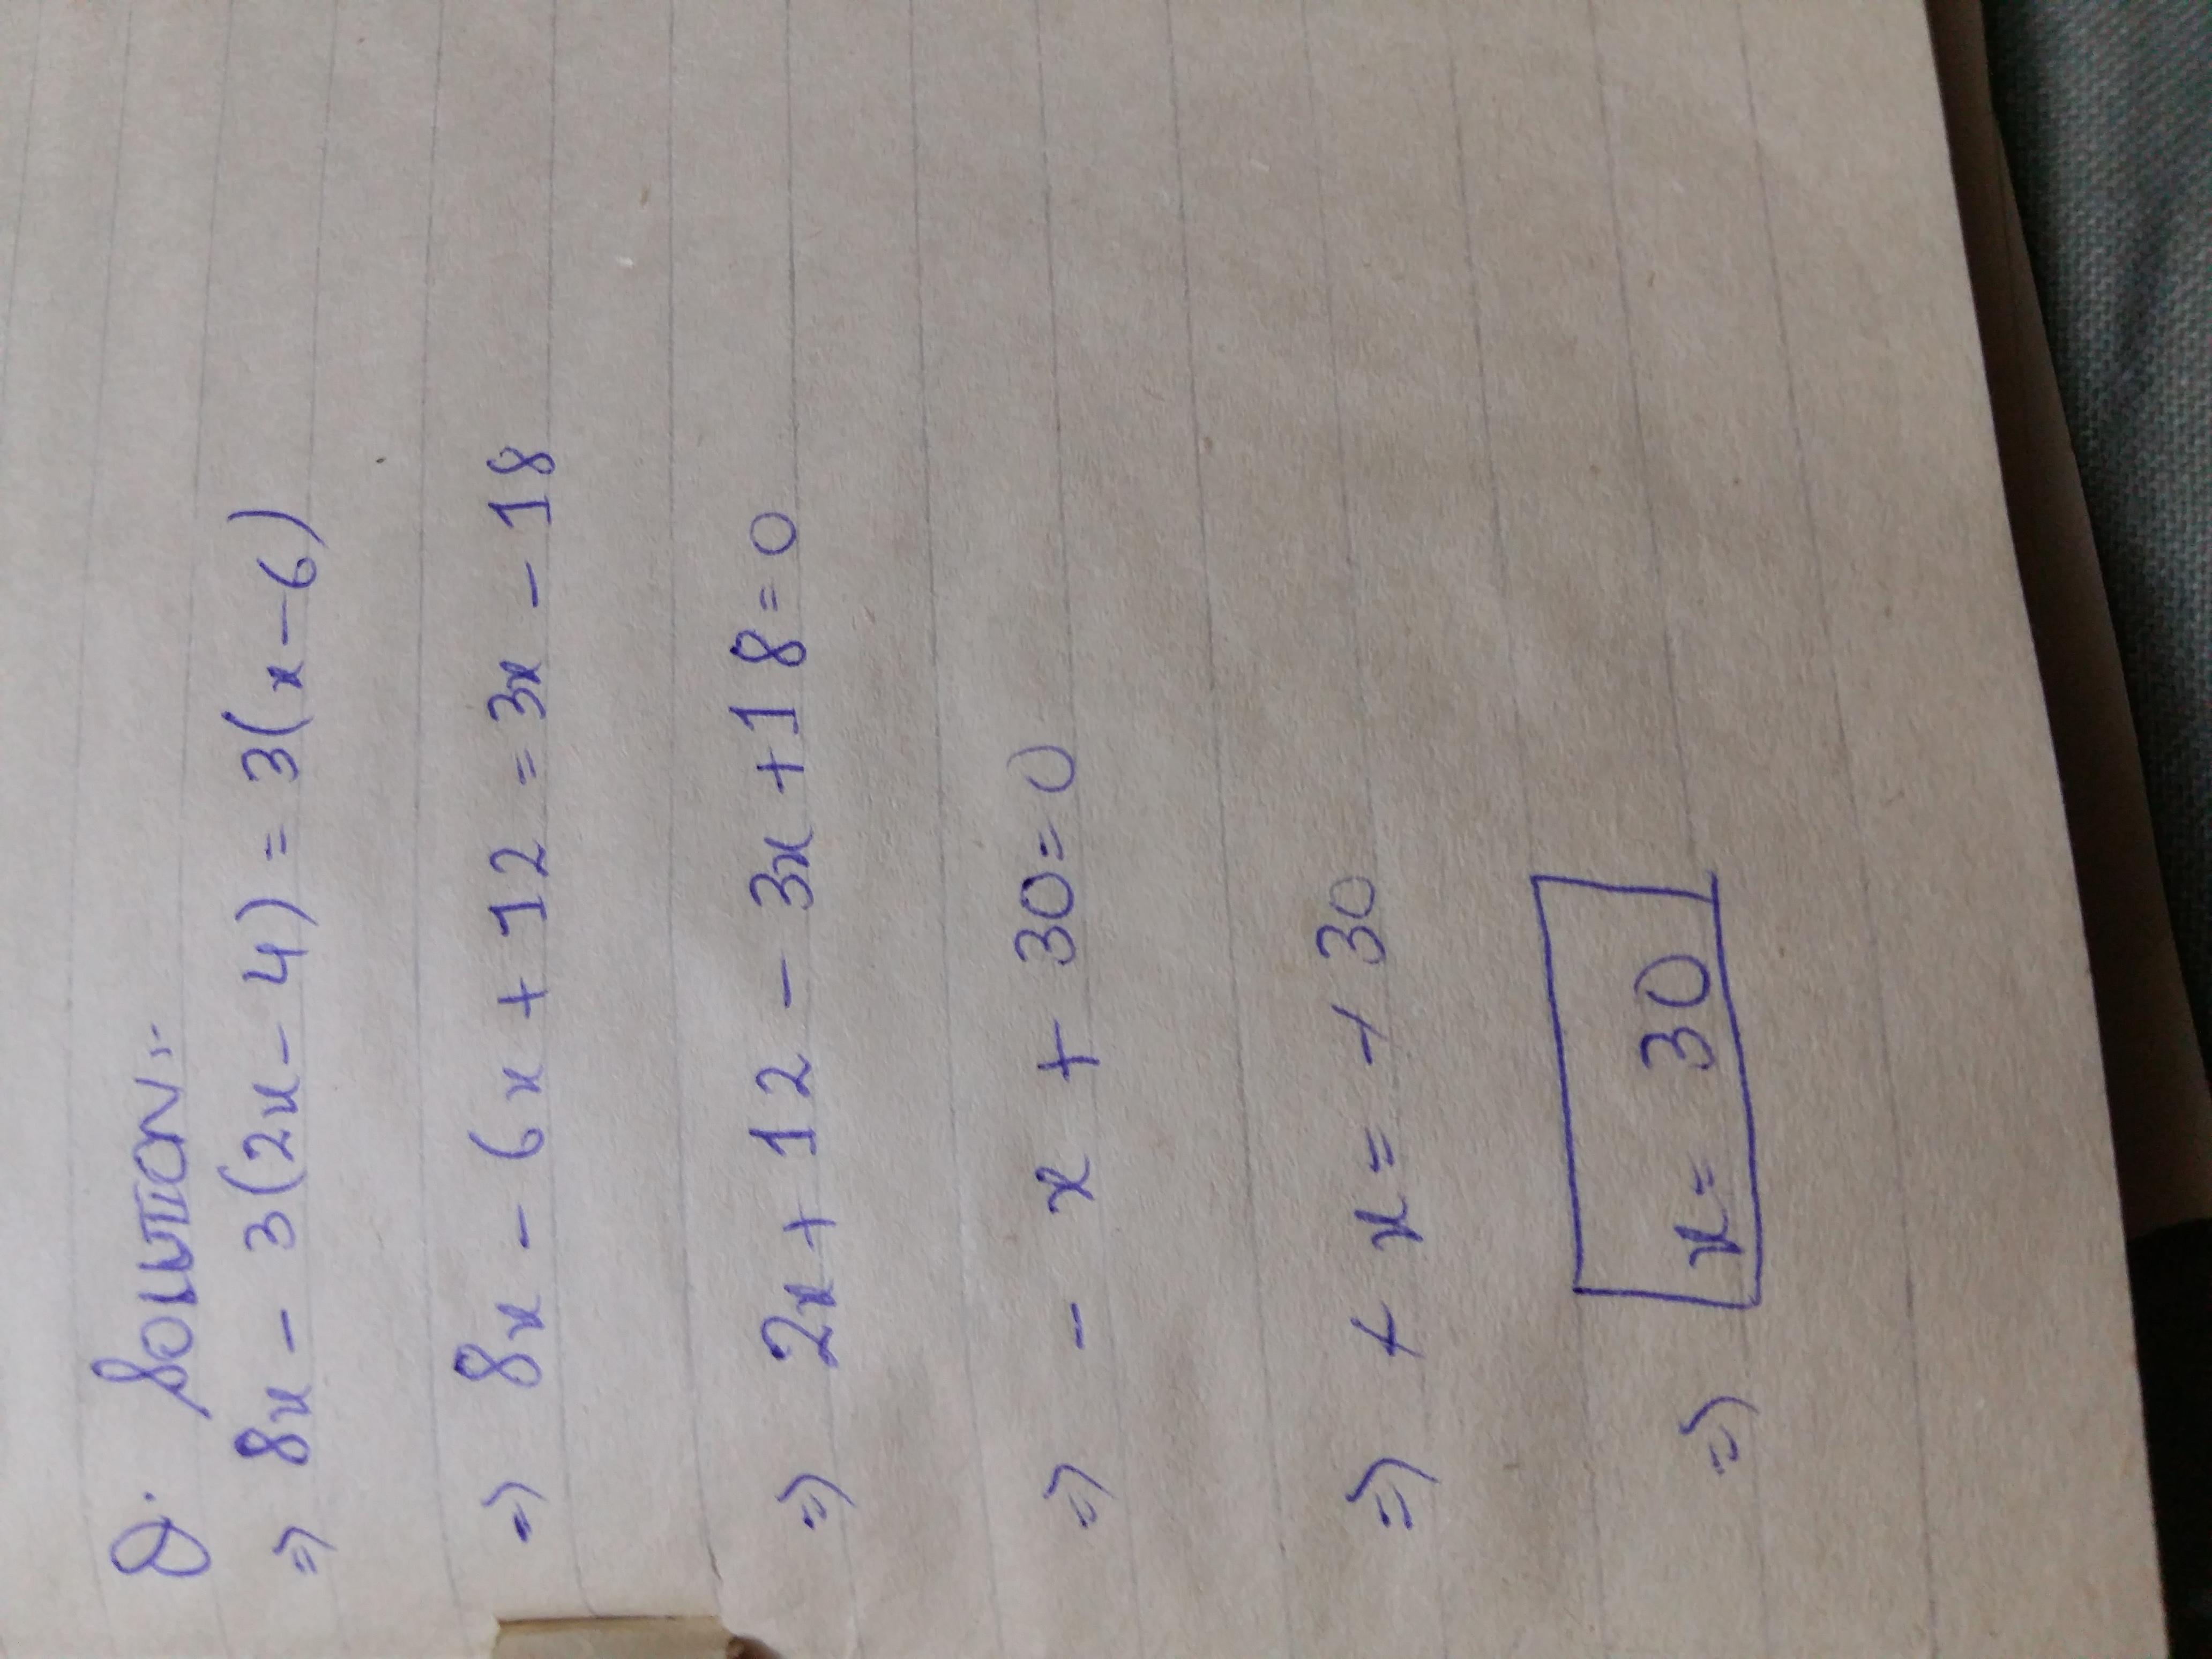 Q. SOLUTION:-
=> 8x - 3(2x - 4) = 3(x - 6)
=> 8x - 6x + 12 = 3x - 18
=> 2x + 12 - 3x + 18 = 0
=> - x + 30 = 0
=> + x = + 30
=> x = 30